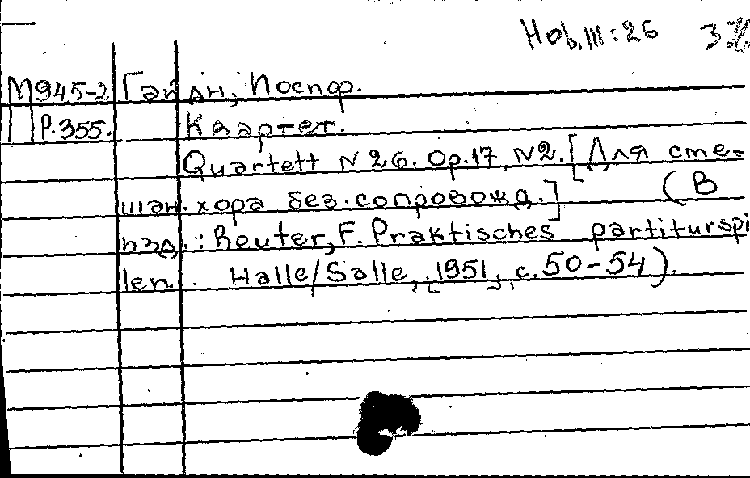 Ноb.III:26 3%
М945-2 Гайдн, Иосиф.
Р.355. Квартет.
Quartett N 26. Op.17, N2. [Для сме-
шан. хора без. сопровожд.] (В
изд.: Reuter, F. Praktisches partiturspi
len. Halle/Salle, 1951, с. 50-54).